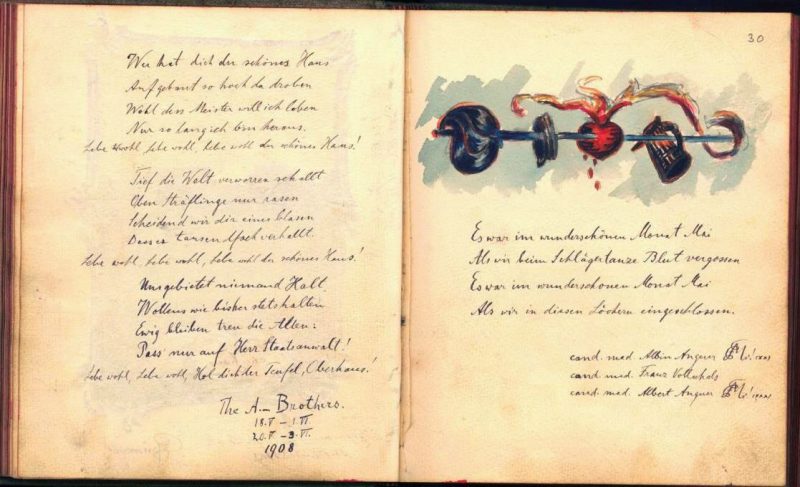 Wer hat dich du schönes Haus
Aufgebaut so hoch da droben
Wohl den Meister will ich loben
Nur so lang ich bin heraus.
Lebe wohl, lebe wohl, lebe wohl du schönes Haus!
Tief die Welt verworren schallt
Oben Sträflinge nur rasen
Scheidend wir dir eines blasen
Dass es tausendfach verhallt.
Lebe wohl, lebe wohl, lebe wohl du schönes Haus!
Uns gebietet niemand Halt
Wollens wie bisher stets halten
Ewig bleiben treu die Alten:
Pass' nur auf Herr Staatsanwalt!
Lebe wohl, lebe wohl, Hol dich der Teufel, Oberhaus!
The A– Brothers.
18.V – 1.VI.
20.V – 3.VI.
1908
30
Es war im wunderschönen Monat Mai
Als wir beim Schlägertanze Blut vergossen
Es war im wunderschönen Monat Mai
Als wir in diesen Löchern eingeschlossen.
cand. med. Albin Angerer
cand. med. Franz
cand. med. Albert Angerer